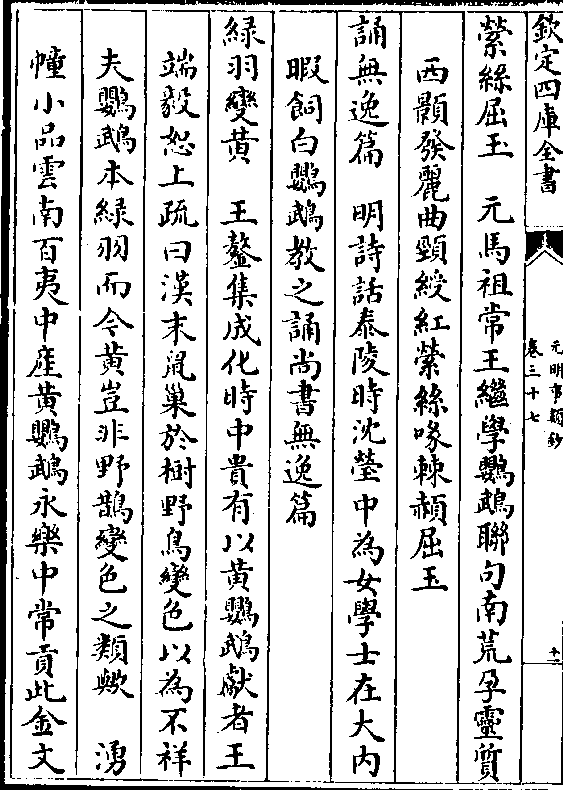 欽定四庫全書
元明事類鈔
卷三十七
十一
縈絲屈玉　元馬祖常王繼學鸚鵡聯句南荒孕靈質
西顥發麗曲頸綬紅縈絲喙棘頳屈玉
誦無逸篇　明詩話泰陵時沈瑩中為女學士在大内
暇飼白鸚鵡教之誦尚書無逸篇
緑羽變黄　王鏊集成化時中貴有以黄鸚鵡獻者王
端毅恕上疏曰漢末鼠巢於樹野鳥變色以為不祥
夫鸚鵡本緑羽而今黄豈非野鵲變色之類歟　湧
幢小品雲南百夷中産黄鸚鵡永樂中常貢此金文